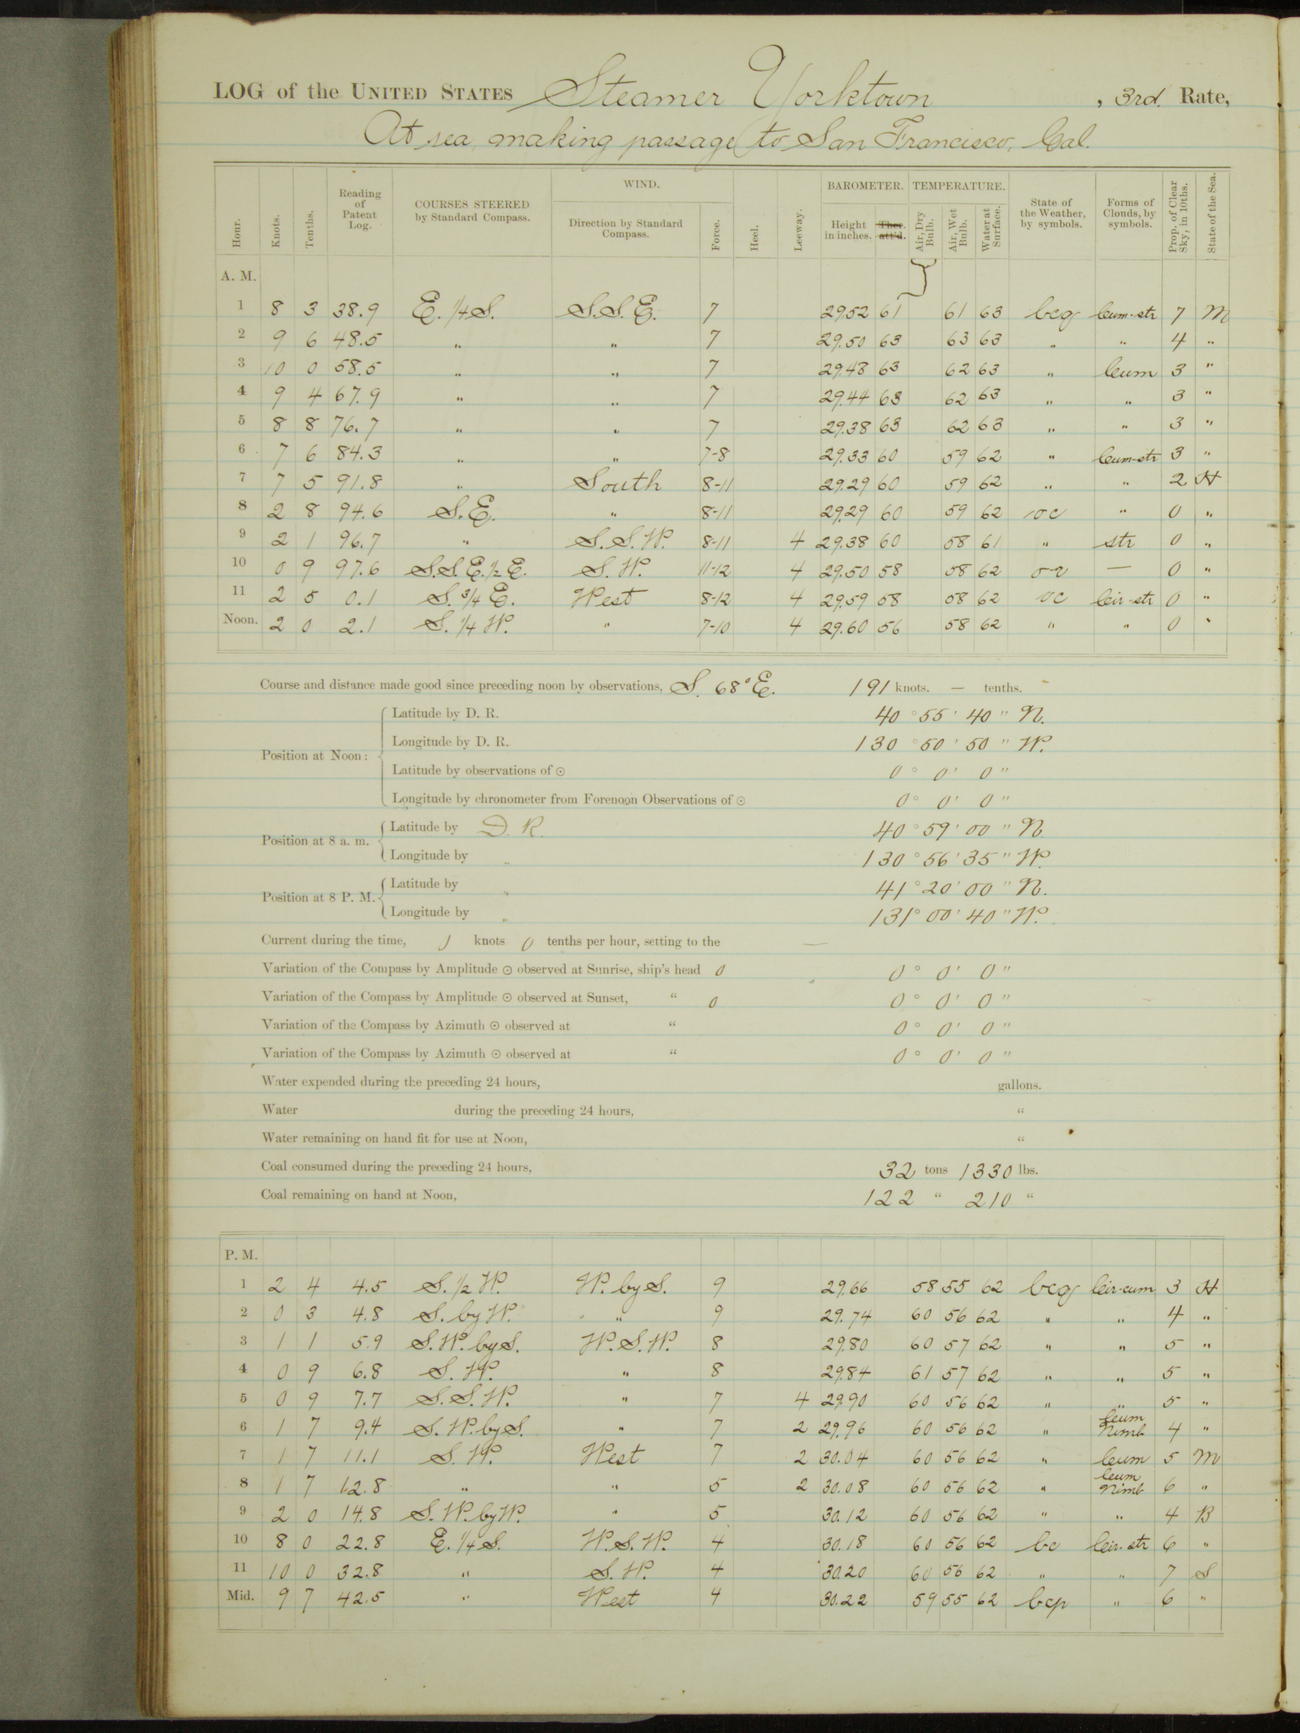 LOG of the UNITED STATES Steamer Yorktown, 3rd. Rate,
At sea, making passage to San Francisco, Cal.
Hour. Knots. Tenths. Reading of Patent Log. COURSES STEERED by Standard Compass. WIND. Direction by Standard Compass. Force. Heel. Leeway. BAROMETER. Height in inches. Ther. att'd. TEMPERATURE. Air, Dry Bulb. Air, Wet Bulb. Water at Surface. State of the Weather, by symbols. Forms of Clouds, by symbols. Prop. of Clear Sky, in 10ths. State of the Sea.
A. M.
1 8 3 38.9 E. 1/4 S. S.S.E. 7 29.52 61 61 63 bcg Cum-str 7 M
2 9 6 48.5 " " 7 29.50 63 63 63 " " 4 "
3 10 0 58.5 " " 7 29.48 63 62 63 " Cum 3 "
4 9 4 67.9 " " 7 29.44 63 62 63 " " 3 "
5 8 8 76.7 " " 7 29.38 63 62 63 " " 3 "
6 7 6 84.3 " " 7-8 29.33 60 59 62 " Cum-str 3 "
7 7 5 91.8 " South 8-11 29.29 60 59 62 " " 2 H
8 2 8 94.6 S.E. " 8-11 29.29 60 59 62 oc " 0 "
9 2 1 96.7 " S.S.W. 8-11 4 29.38 60 58 61 " str 0 "
10 0 9 97.6 S.S.E. 1/2 E. S.W. 11-12 4 29.50 58 58 62 or — 0 "
11 2 5 0.1 S. 3/4 E. West 8-12 4 29.59 58 58 62 oc Cir-str 0 "
Noon. 2 0 2.1 S. 1/4 W. " 7-10 4 29.60 56 58 62 " " 0 "
Course and distance made good since preceding noon by observations, S. 68° E. 191 knots. — tenths.
Position at Noon: Latitude by D. R. 40° 55' 40" N.
Longitude by D. R. 130° 50' 50" W.
Latitude by observations of ☉ 0° 0' 0"
Longitude by chronometer from Forenoon Observations of ☉ 0° 0' 0"
Position at 8 a. m. Latitude by D. R. 40° 59' 00" N.
Longitude by " 130° 56' 35" W.
Position at 8 P. M. Latitude by " 41° 20' 00" N.
Longitude by " 131° 00' 40" W.
Current during the time, 0 knots 0 tenths per hour, setting to the —
Variation of the Compass by Amplitude ☉ observed at Sunrise, ship's head 0 0° 0' 0"
Variation of the Compass by Amplitude ☉ observed at Sunset, " 0 0° 0' 0"
Variation of the Compass by Azimuth ☉ observed at " 0° 0' 0"
Variation of the Compass by Azimuth ☉ observed at " 0° 0' 0"
Water expended during the preceding 24 hours, gallons.
Water during the preceding 24 hours, "
Water remaining on hand fit for use at Noon, "
Coal consumed during the preceding 24 hours, 32 tons 1330 lbs.
Coal remaining on hand at Noon, 122 " 210 "
P. M.
1 2 4 4.5 S. 1/2 W. W. by S. 9 29.66 58 55 62 bcg Cir-cum 3 H
2 0 3 4.8 S. by W. " 9 29.74 60 56 62 " " 4 "
3 1 1 5.9 S.W. by S. W.S.W. 8 29.80 60 57 62 " " 5 "
4 0 9 6.8 S.W. " 8 29.84 61 57 62 " " 5 "
5 0 9 7.7 S.S.W. " 7 4 29.90 60 56 62 " " 5 "
6 1 7 9.4 S.W. by S. " 7 2 29.96 60 56 62 " Cum Nimb 4 "
7 1 7 11.1 S.W. West 7 2 30.04 60 56 62 " Cum 5 M
8 1 7 12.8 " " 5 2 30.08 60 56 62 " Cum Nimb 6 "
9 2 0 14.8 S.W. by W. " 5 30.12 60 56 62 " " 4 B
10 8 0 22.8 E. 1/4 S. W.S.W. 4 30.18 60 56 62 bc Cir-str 6 "
11 10 0 32.8 " S.W. 4 30.20 60 56 62 " " 7 S
Mid. 9 7 42.5 " West 4 30.22 59 55 62 bcp " 6 "